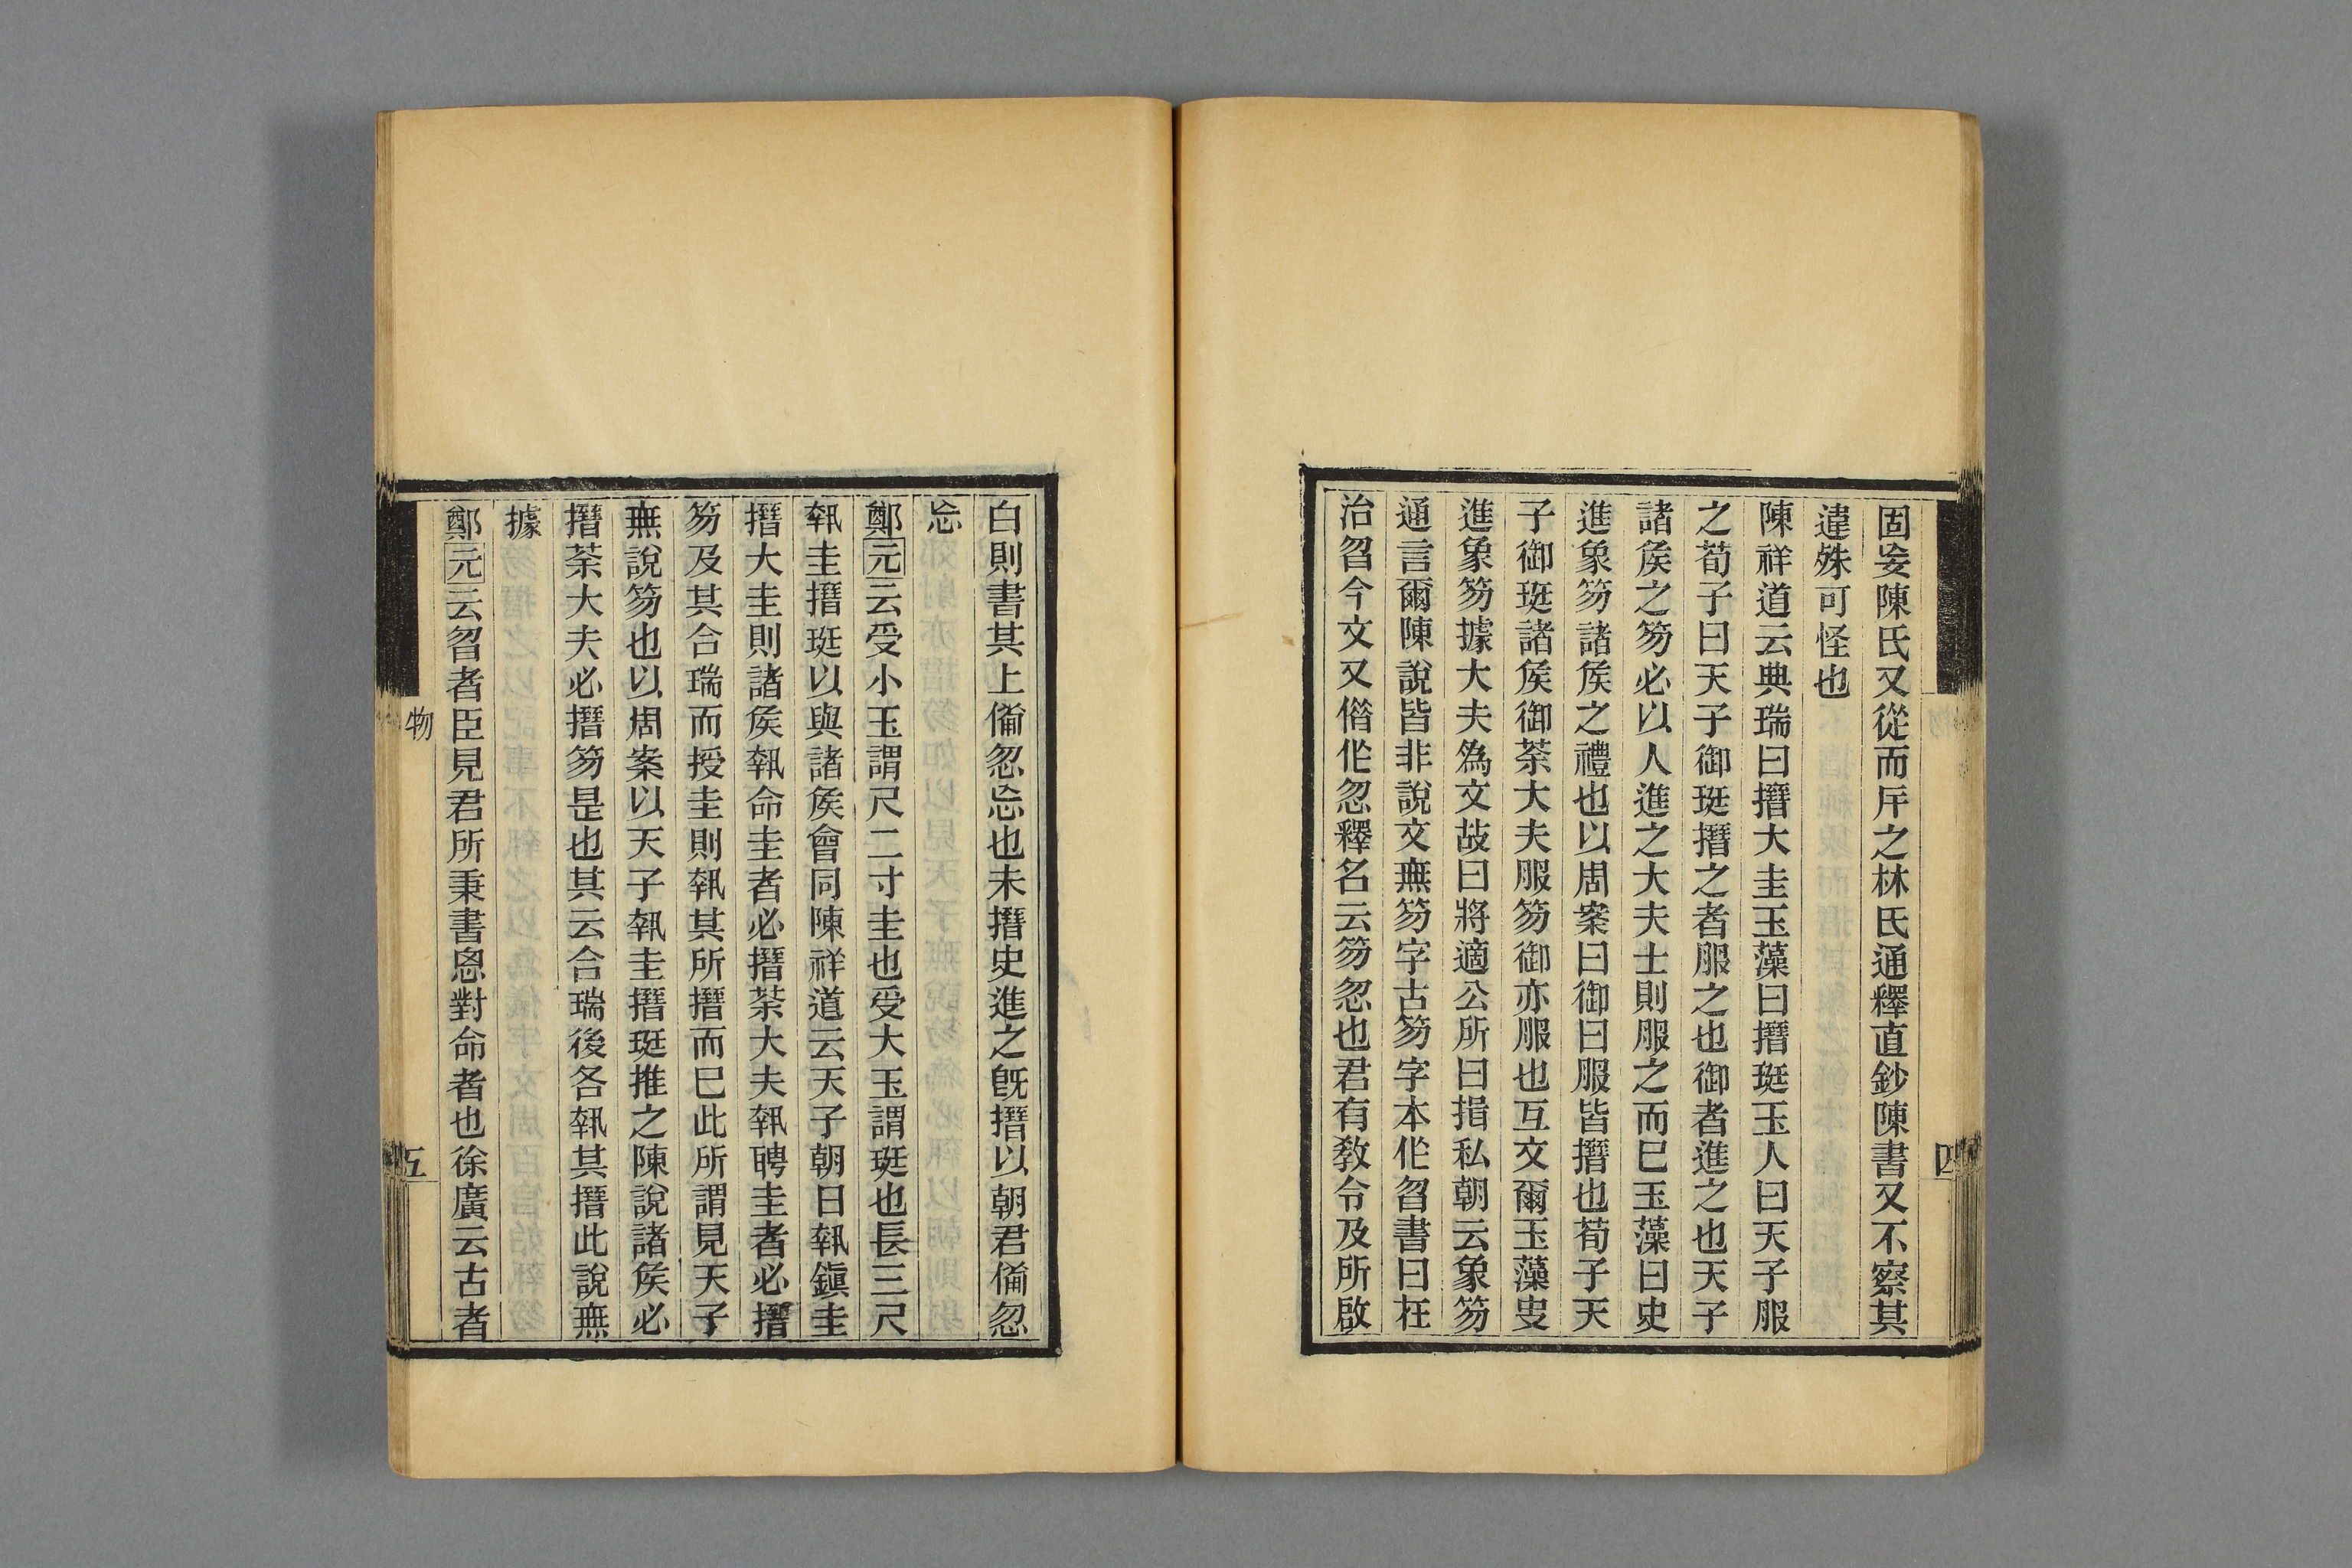 固妄陳氏又從而㡿之林氏通釋直鈔陳書又不察其
違殊可怪也
陳祥道云典瑞曰搢大圭玉藻曰搢珽玉人曰天子服
之荀子曰天子御珽搢之者服之也御者進之也天子
諸矦之笏必以人進之大夫士則服之而巳玉藻曰史
進象笏諸矦之禮也以周案曰御曰服皆搢也荀子天
子御珽諸矦御荼大夫服笏御亦服也互文爾玉藻叓
進象笏據大夫爲文故曰將適公所曰揖私朝云象笏
通言爾陳說皆非說文無笏字古笏字本作曶書曰在
治曶今文又偺作忽釋名云笏忽也君有敎令及所啟
四
白則書其上僃忽忘也未搢史進之旣搢以朝君僃忽
忘
鄭元云受小玉謂尺二寸圭也受大玉謂珽也長三尺
執圭搢珽以與諸矦會同陳祥道云天子朝日執鎭圭
搢大圭則諸矦執命圭者必搢荼大夫執聘圭者必搢
笏及其合瑞而授圭則執其所搢而巳此所謂見天子
無說笏也以周案以天子執圭搢珽推之陳說諸矦必
搢荼大夫必搢笏是也其云合瑞後各執其搢此說無
據
鄭元云曶者臣見君所秉書思對命者也徐廣云古者
物
五